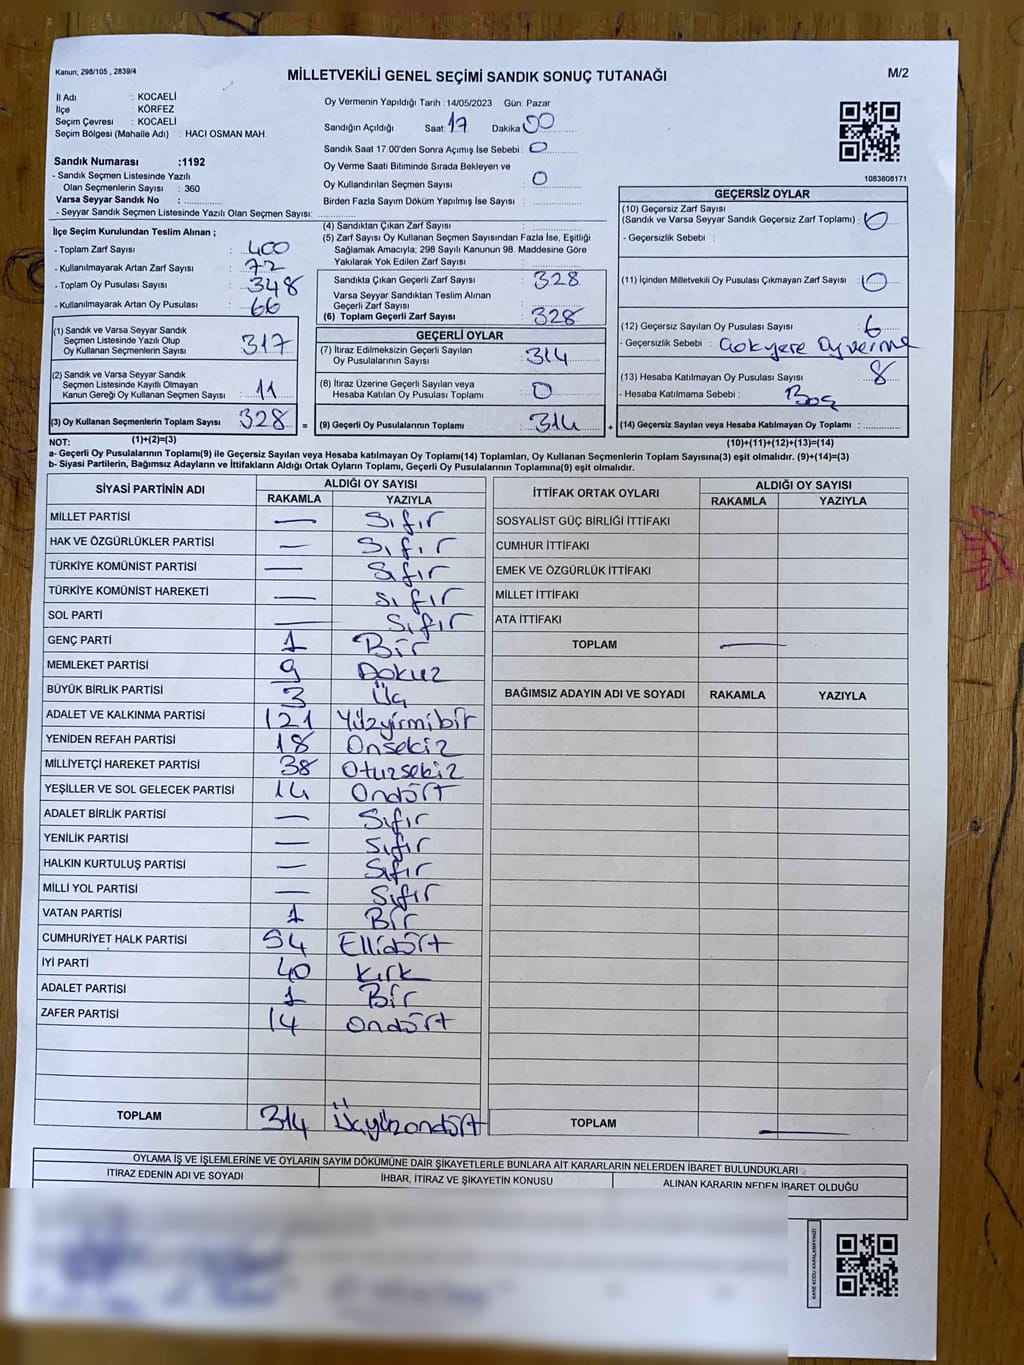 Kanun; 298/105 , 2839/4
MİLLETVEKİLİ GENEL SEÇİMİ SANDIK SONUÇ TUTANAĞI
M/2
İl Adı : KOCAELİ
İlçe : KÖRFEZ
Seçim Çevresi : KOCAELİ
Seçim Bölgesi (Mahalle Adı) : HACI OSMAN MAH.
Sandık Numarası :1192
- Sandık Seçmen Listesinde Yazılı
Olan Seçmenlerin Sayısı : 360
Varsa Seyyar Sandık No :
- Seyyar Sandık Seçmen Listesinde Yazılı Olan Seçmen Sayısı:
Oy Vermenin Yapıldığı Tarih : 14/05/2023 Gün: Pazar
Sandığın Açıldığı Saat: 17 Dakika 00
Sandık Saat 17:00'den Sonra Açımış İse Sebebi : 0
Oy Verme Saati Bitiminde Sırada Bekleyen ve
Oy Kullandırılan Seçmen Sayısı 0
Birden Fazla Sayım Döküm Yapılmış İse Sayısı :
1083808171
İlçe Seçim Kurulundan Teslim Alınan ;
- Toplam Zarf Sayısı : 400
- Kullanılmayarak Artan Zarf Sayısı : 72
- Toplam Oy Pusulası Sayısı : 348
- Kullanılmayarak Artan Oy Pusulası : 66
(1) Sandık ve Varsa Seyyar Sandık
Seçmen Listesinde Yazılı Olup
Oy Kullanan Seçmenlerin Sayısı 317
(2) Sandık ve Varsa Seyyar Sandık
Seçmen Listesinde Kayıtlı Olmayan
Kanun Gereği Oy Kullanan Seçmen Sayısı 11
(3) Oy Kullanan Seçmenlerin Toplam Sayısı 328
(1)+(2)=(3)
(4) Sandıktan Çıkan Zarf Sayısı :
(5) Zarf Sayısı Oy Kullanan Seçmen Sayısından Fazla İse, Eşitliği
Sağlamak Amacıyla; 298 Sayılı Kanunun 98. Maddesine Göre
Yakılarak Yok Edilen Zarf Sayısı :
Sandıkta Çıkan Geçerli Zarf Sayısı : 328
Varsa Seyyar Sandıktan Teslim Alınan
Geçerli Zarf Sayısı :
(6) Toplam Geçerli Zarf Sayısı : 328
GEÇERLİ OYLAR
(7) İtiraz Edilmeksizin Geçerli Sayılan
Oy Pusulalarının Sayısı : 314
(8) İtiraz Üzerine Geçerli Sayılan veya
Hesaba Katılan Oy Pusulası Toplamı : 0
= (9) Geçerli Oy Pusulalarının Toplamı : 314 +
GEÇERSİZ OYLAR
(10) Geçersiz Zarf Sayısı
(Sandık ve Varsa Seyyar Sandık Geçersiz Zarf Toplamı) : 0
- Geçersizlik Sebebi :
(11) İçinden Milletvekili Oy Pusulası Çıkmayan Zarf Sayısı : 0
(12) Geçersiz Sayılan Oy Pusulası Sayısı : 6
- Geçersizlik Sebebi : Çokyere Oyverme
(13) Hesaba Katılmayan Oy Pusulası Sayısı : 8
- Hesaba Katılmama Sebebi : Boş
(14) Geçersiz Sayılan veya Hesaba Katılmayan Oy Toplamı :
(10)+(11)+(12)+(13)=(14)
NOT:
a- Geçerli Oy Pusulalarının Toplamı(9) ile Geçersiz Sayılan veya Hesaba katılmayan Oy Toplamı(14) Toplamları, Oy Kullanan Seçmenlerin Toplam Sayısına(3) eşit olmalıdır. (9)+(14)=(3)
b- Siyasi Partilerin, Bağımsız Adayların ve İttifakların Aldığı Ortak Oyların Toplamı, Geçerli Oy Pusulalarının Toplamına(9) eşit olmalıdır.
SİYASİ PARTİNİN ADI ALDIĞI OY SAYISI
RAKAMLA YAZIYLA
MİLLET PARTİSİ — Sıfır
HAK VE ÖZGÜRLÜKLER PARTİSİ — Sıfır
TÜRKİYE KOMÜNİST PARTİSİ — Sıfır
TÜRKİYE KOMÜNİST HAREKETİ — Sıfır
SOL PARTİ — Sıfır
GENÇ PARTİ 1 Bir
MEMLEKET PARTİSİ 9 Dokuz
BÜYÜK BİRLİK PARTİSİ 3 Üç
ADALET VE KALKINMA PARTİSİ 121 Yüzyirmibir
YENİDEN REFAH PARTİSİ 18 Onsekiz
MİLLİYETÇİ HAREKET PARTİSİ 38 Otuzsekiz
YEŞİLLER VE SOL GELECEK PARTİSİ 14 Ondört
ADALET BİRLİK PARTİSİ — Sıfır
YENİLİK PARTİSİ — Sıfır
HALKIN KURTULUŞ PARTİSİ — Sıfır
MİLLİ YOL PARTİSİ — Sıfır
VATAN PARTİSİ 1 Bir
CUMHURİYET HALK PARTİSİ 54 Ellidört
İYİ PARTİ 40 Kırk
ADALET PARTİSİ 1 Bir
ZAFER PARTİSİ 14 Ondört
TOPLAM 314 Üçyüzondört
İTTİFAK ORTAK OYLARI ALDIĞI OY SAYISI
RAKAMLA YAZIYLA
SOSYALİST GÜÇ BİRLİĞİ İTTİFAKI
CUMHUR İTTİFAKI
EMEK VE ÖZGÜRLÜK İTTİFAKI
MİLLET İTTİFAKI
ATA İTTİFAKI
TOPLAM —
BAĞIMSIZ ADAYIN ADI VE SOYADI RAKAMLA YAZIYLA
TOPLAM —
OYLAMA İŞ VE İŞLEMLERİNE VE OYLARIN SAYIM DÖKÜMÜNE DAİR ŞİKAYETLERLE BUNLARA AİT KARARLARIN NELERDEN İBARET BULUNDUKLARI
İTİRAZ EDENİN ADI VE SOYADI İHBAR, İTİRAZ VE ŞİKAYETİN KONUSU ALINAN KARARIN NEDEN İBARET OLDUĞU
KARE KODU KARALAMAYINIZ!